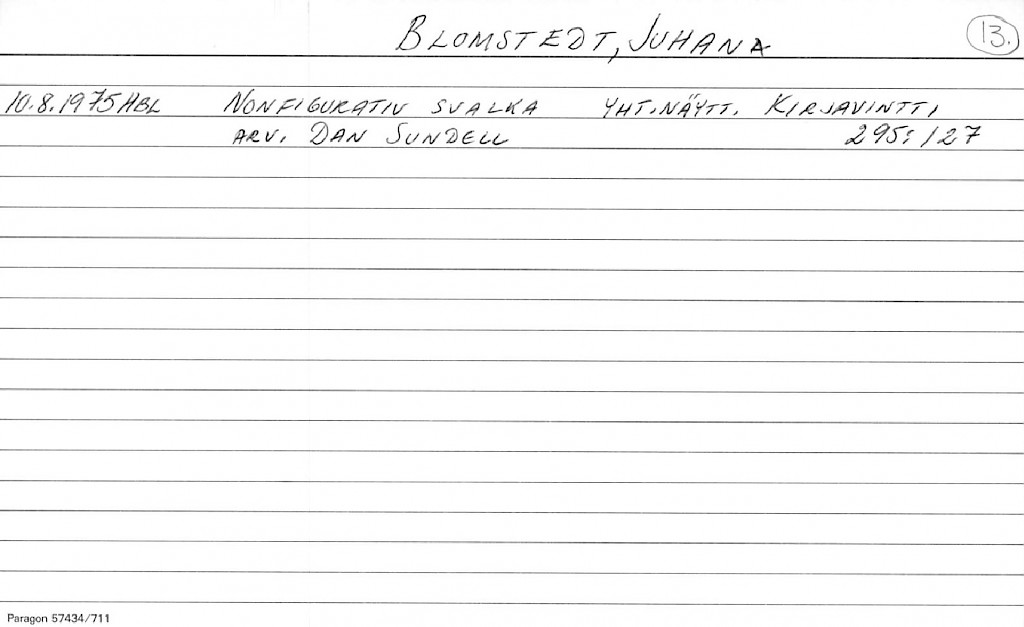 BLOMSTEDT, JUHANA 13.
10.8.1975 HBL NONFIGURATIV SVALKA YHT.NÄYTT. KIRJAVINTTI,
ARV. DAN SUNDELL 295:/27
Paragon 57434/711